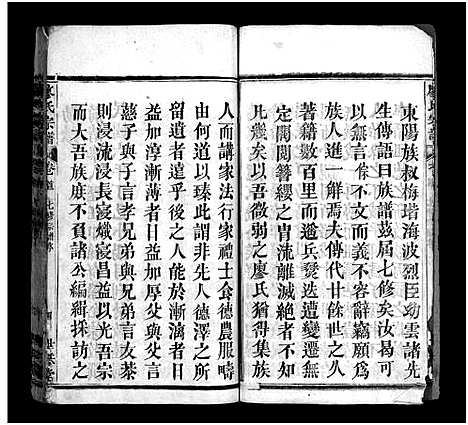 東陽族叔梅塔海波烈臣幼雲諸先
生傳語曰族譜茲屆七修矣汝曷可
以無言佩不文而義不容辭竊願為
族人進一解焉夫傳代廿餘世之人
著籍數百里而遙兵燹迭遭變遷無
定閥閱簪纓之胄流離滅絕者于
比幾矣以吾微弱之廖氏猶得集族
人而講家法行家禮士食德農服疇
由何道以致此謂非先人德澤之所
留遺者遠乎後之人能於漸漓者日
益加淳漸薄者日益加厚父與父言
慈子與子言孝兄弟與兄弟言友恭
則浸流浸長寢熾寢昌益以光吾宗
而大吾族庶不負諸公編緝採訪之
廖氏宗譜
卷首
世綵堂